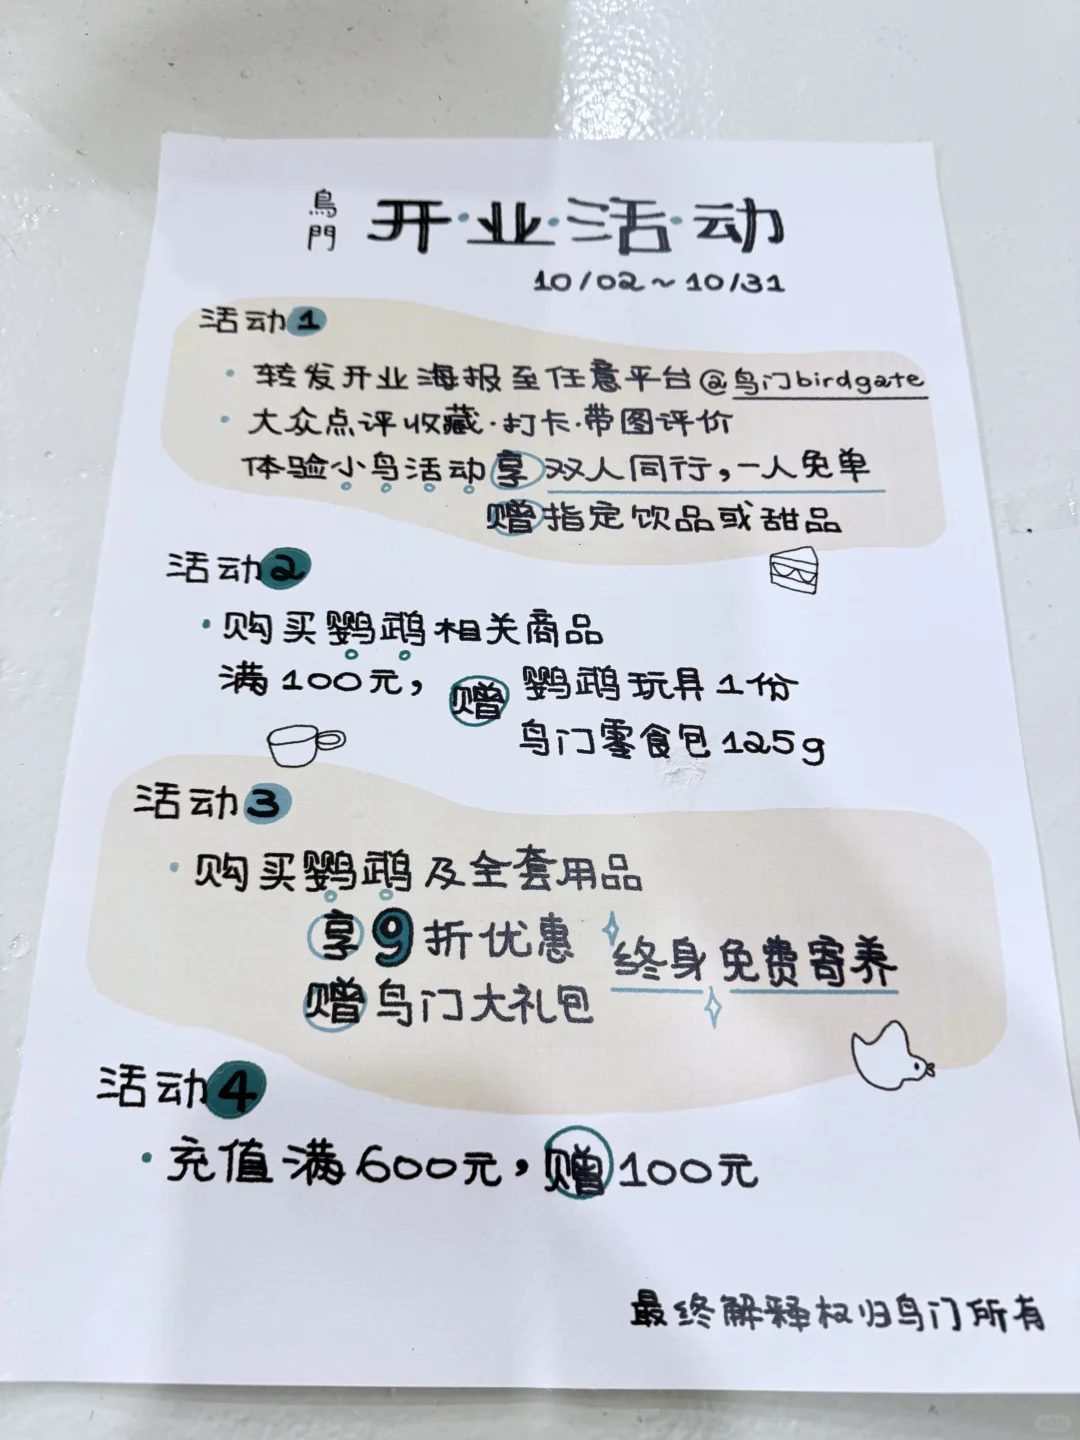 鳥門
开·业·活·动
10/02~10/31
活动1
· 转发开业海报至任意平台@鸟门birdgate
· 大众点评收藏·打卡·带图评价
体验小鸟活动享双人同行,一人免单
赠指定饮品或甜品
活动2
· 购买鹦鹉相关商品
满100元,赠 鹦鹉玩具1份
鸟门零食包125g
活动3
· 购买鹦鹉及全套用品
享9折优惠 终身免费寄养
赠鸟门大礼包
活动4
· 充值满600元,赠100元
最终解释权归鸟门所有